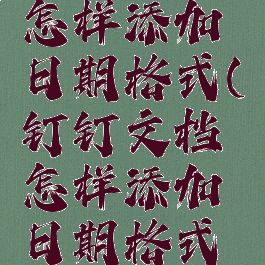 怎样添加
日期格式(
钉钉文档
怎样添加
日期格式